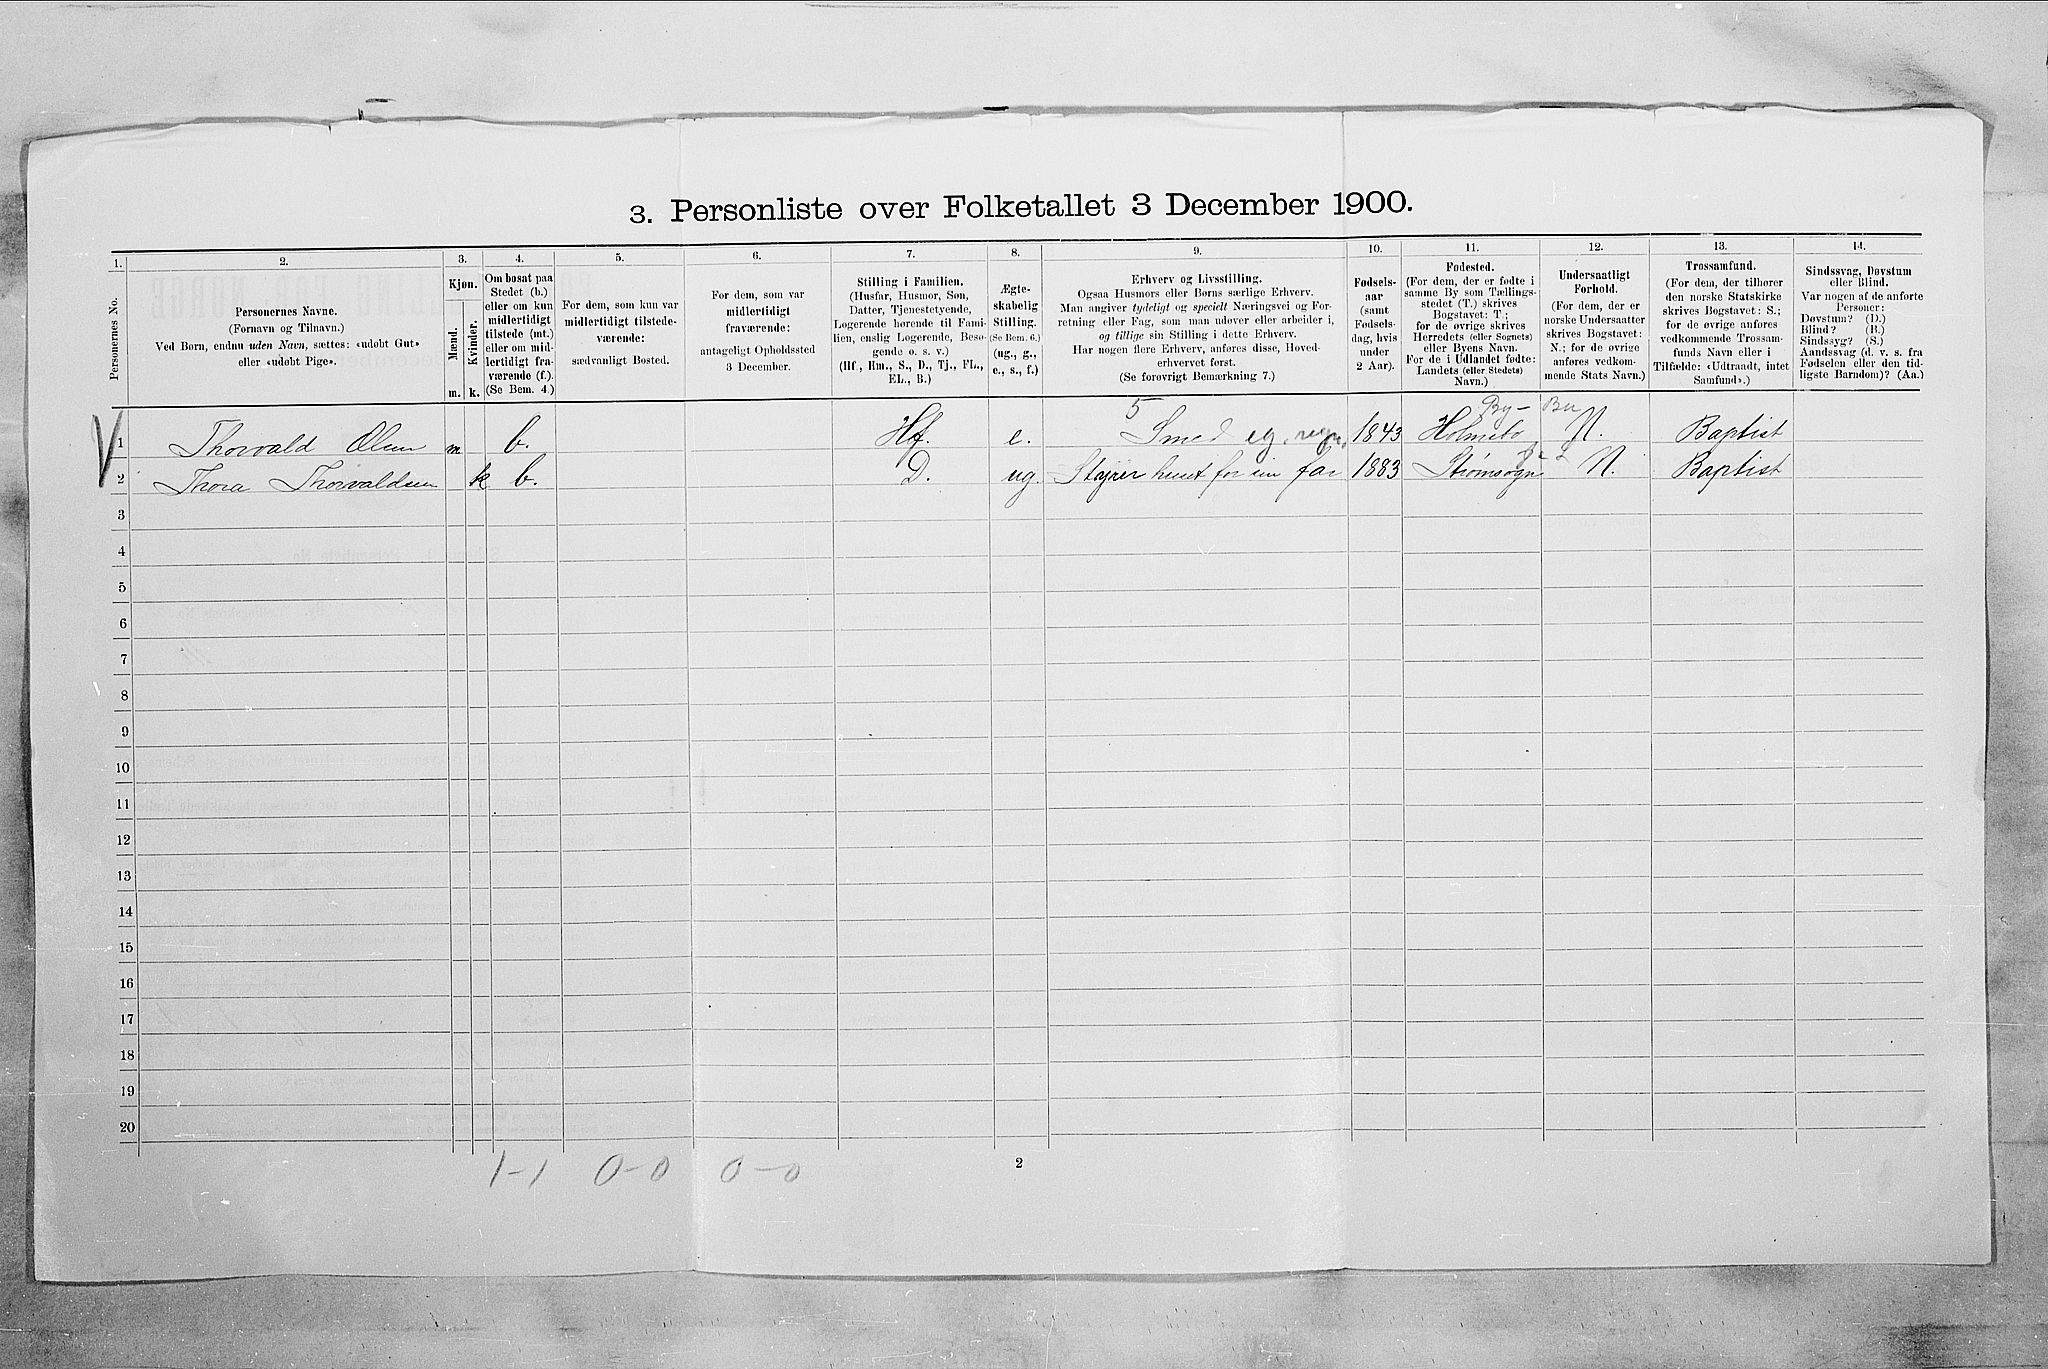 3. Personliste over Folketallet 3 December 1900.
1.
Personernes No.
2.
Personernes Navne.
(Fornavn og Tilnavn.)
Ved Børn, endnu uden Navn, sættes: «udøbt Gut»
eller «udøbt Pige».
3.
Kjøn.
Mænd.
Kvinder.
m. k.
4.
Om bosat paa
Stedet (b.)
eller om kun
midlertidigt
tilstede (mt.)
eller om mid-
lertidigt fra-
værende (f.).
(Se Bem. 4.)
5.
For dem, som kun var
midlertidigt tilstede-
værende:
sædvanligt Bosted.
6.
For dem, som var
midlertidigt
fraværende:
antageligt Opholdssted
3 December.
7.
Stilling i Familien.
(Husfar, Husmor, Søn,
Datter, Tjenestetyende,
Logerende hørende til Fami-
lien, enslig Logerende, Besø-
gende o. s. v.)
(Hf., Hm., S., D., Tj., FL.,
EL., B.)
8.
Ægte-
skabelig
Stilling.
(Se Bem. 6.)
(ug., g.,
e., s., f.)
9.
Erhverv og Livsstilling.
Ogsaa Husmors eller Børns særlige Erhverv.
Man angiver tydeligt og specielt Næringsvei og For-
retning eller Fag, som man udøver eller arbeider i,
og tillige sin Stilling i dette Erhverv.
Har nogen flere Erhverv, anføres disse, Hoved-
erhvervet først.
(Se forøvrigt Bemærkning 7.)
10.
Fødsels-
aar
(samt
Fødsels-
dag, hvis
under
2 Aar).
11.
Fødested.
(For dem, der er fødte i
samme By som Tællings-
stedet (T.) skrives
Bogstavet: T.;
for de øvrige skrives
Herredets (eller Sognets)
eller Byens Navn.
For de i Udlandet fødte:
Landets (eller Stedets)
Navn.)
12.
Undersaatligt
Forhold.
(For dem, der er
norske Undersaatter
skrives Bogstavet:
N.; for de øvrige
anføres vedkom-
mende Stats Navn.)
13.
Trossamfund.
(For dem, der tilhører
den norske Statskirke
skrives Bogstavet: S.;
for de øvrige anføres
vedkommende Trossam-
funds Navn eller i
Tilfælde: «Udtraadt, intet
Samfund».)
14.
Sindssvag, Døvstum
eller Blind.
Var nogen af de anførte
Personer:
Døvstum? (D.)
Blind? (B.)
Sindssyg? (S.)
Aandssvag (d. v. s. fra
Fødselen eller den tid-
ligste Barndom)? (Aa.)
5 By-
1 Thorvald Olsen m b. Hf. e. Smed eg. regn. 1843 Holmsbo N. Baptist
2 Thora Thorvaldsen k b. D. ug. Styrer huset for sin far 1883 Strømsogn N. Baptist
3
4
5
6
7
8
9
10
11
12
13
14
15
16
17
18
19
20
1-1 0-0 0-0
2